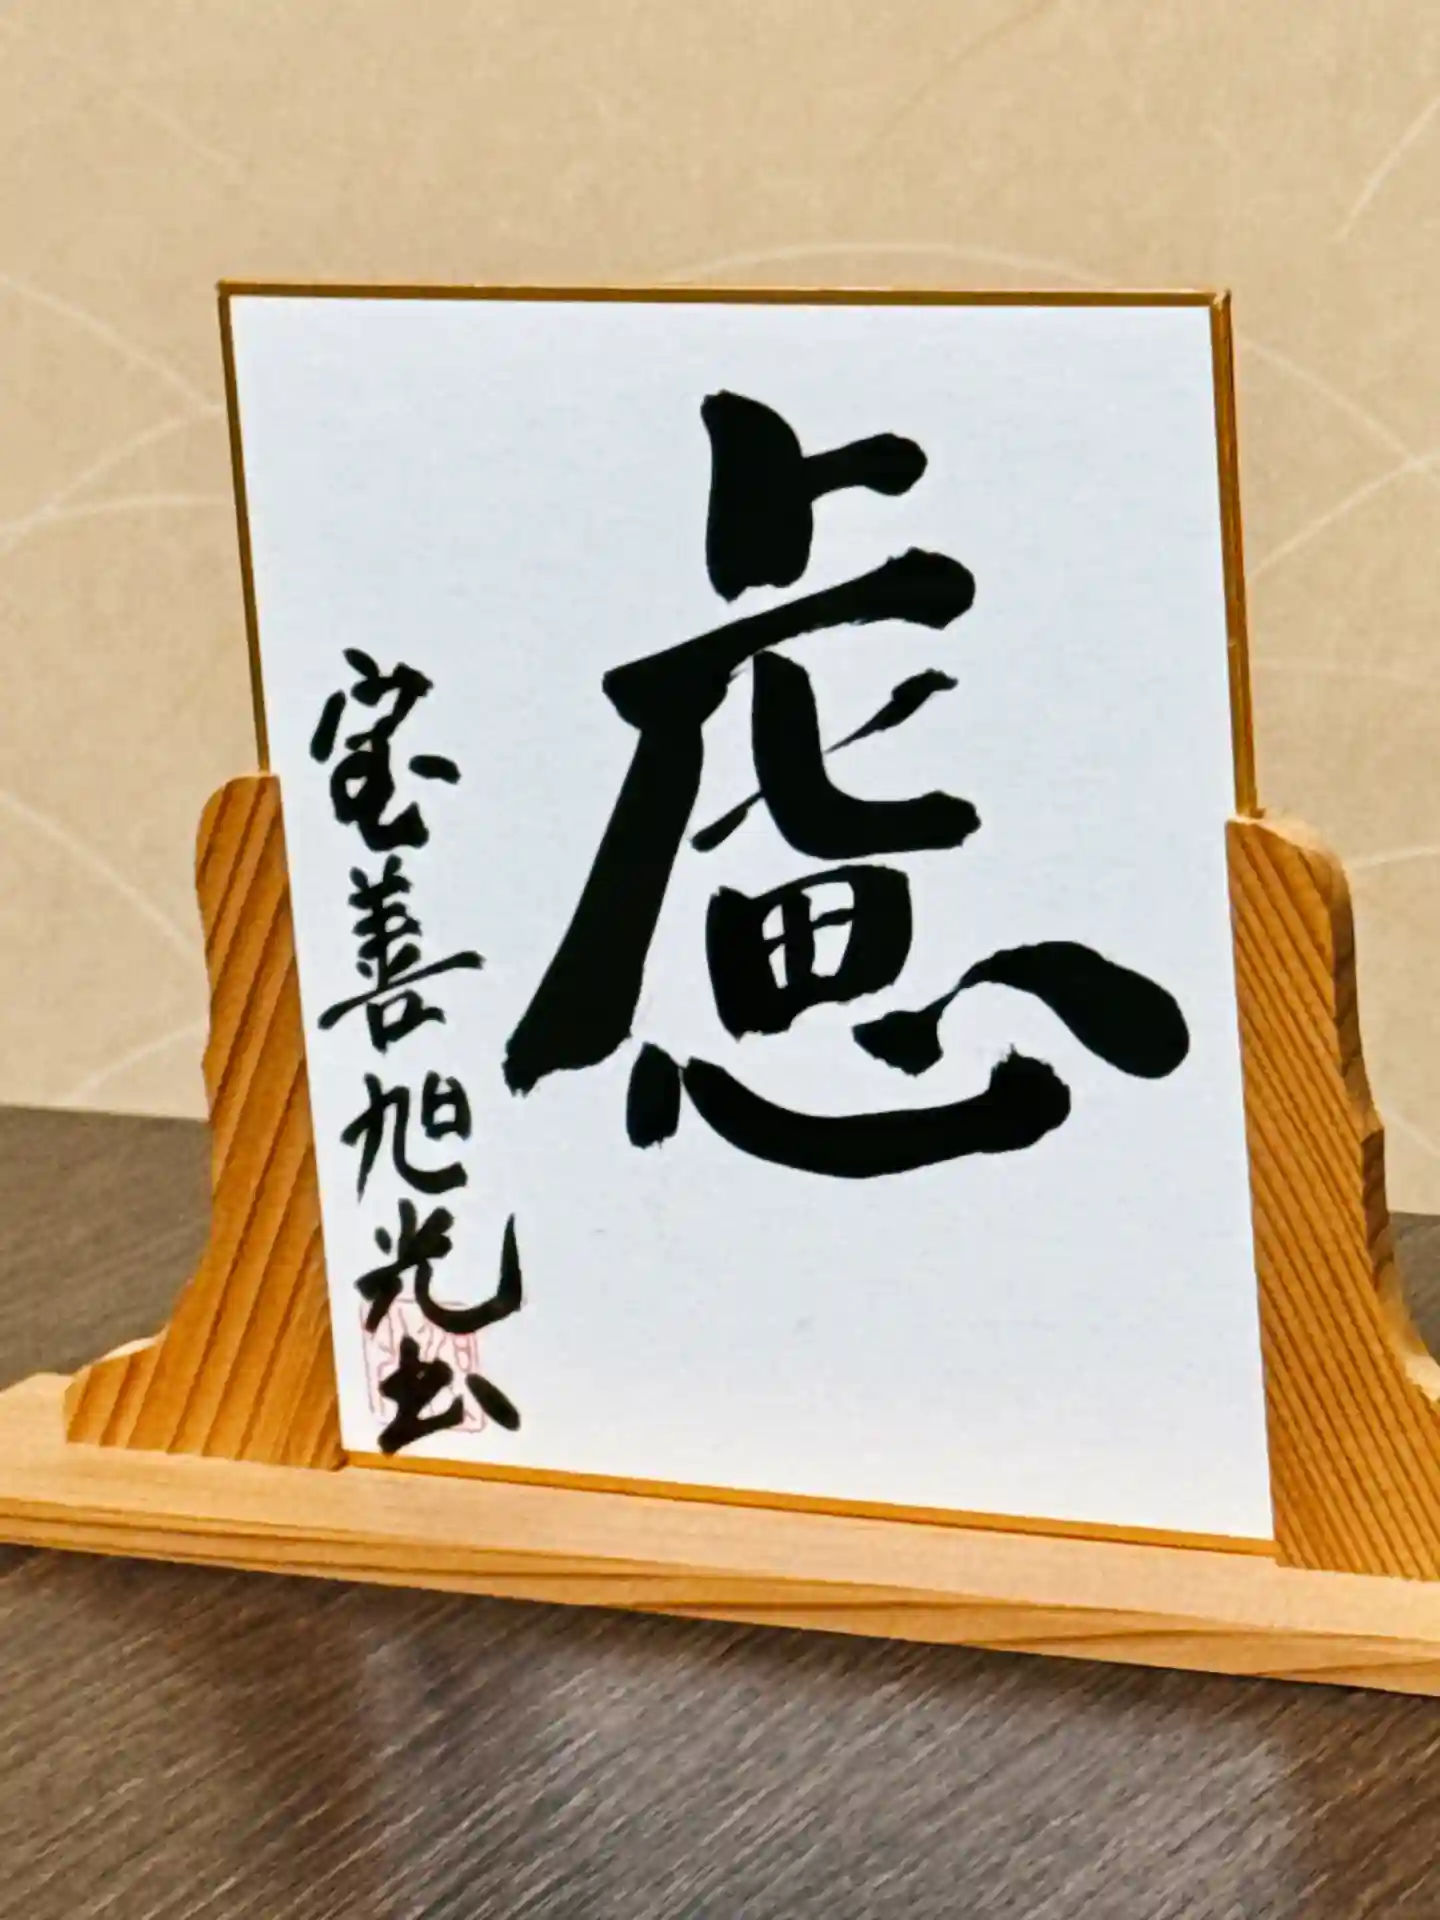 慮
宝善旭光書